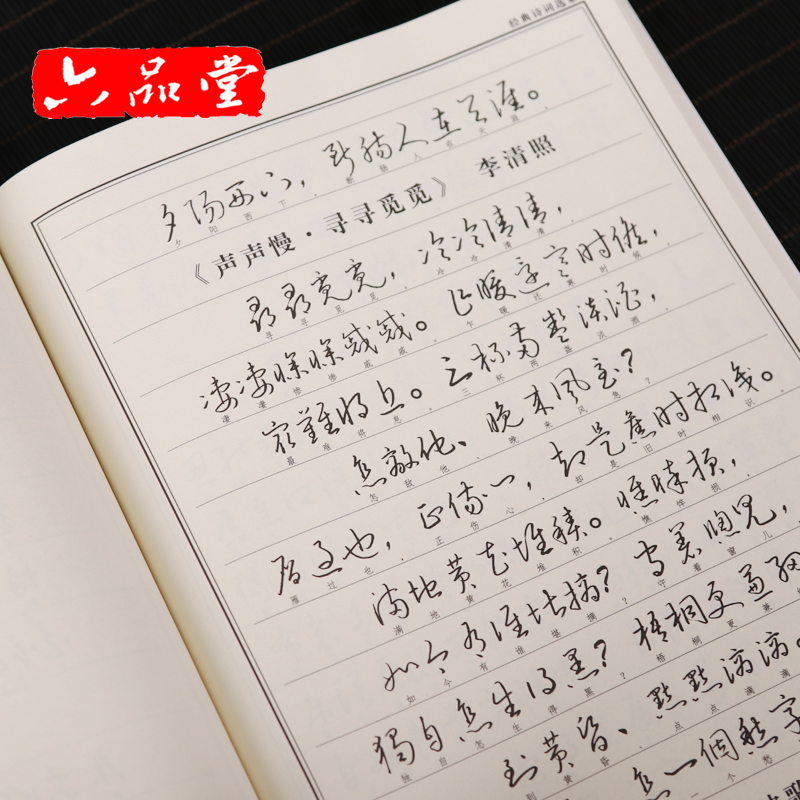 六品堂
经典诗词选
夕阳西下，断肠人在天涯。
夕阳西下，断肠人在天涯。
《声声慢·寻寻觅觅》 李清照
尋尋覓覓，冷冷清清，
寻寻觅觅，冷冷清清，
凄凄惨惨戚戚。乍暖还寒时候，
凄凄惨惨戚戚。乍暖还寒时候，
最難将息。三杯两盏淡酒，
最难将息。三杯两盏淡酒，
怎敵他、晚来风急？
怎敌他、晚来风急？
雁过也，正伤心，却是旧时相识。
雁过也，正伤心，却是旧时相识。
满地黄花堆积。憔悴损，
满地黄花堆积。憔悴损，
如今有谁堪摘？守着窗儿，
如今有谁堪摘？守着窗儿，
獨自怎生得黑？梧桐更兼细
独自怎生得黑？梧桐更兼细
到黄昏、點點滴滴。
到黄昏、点点滴滴。
怎一個愁字
怎一个愁
歌